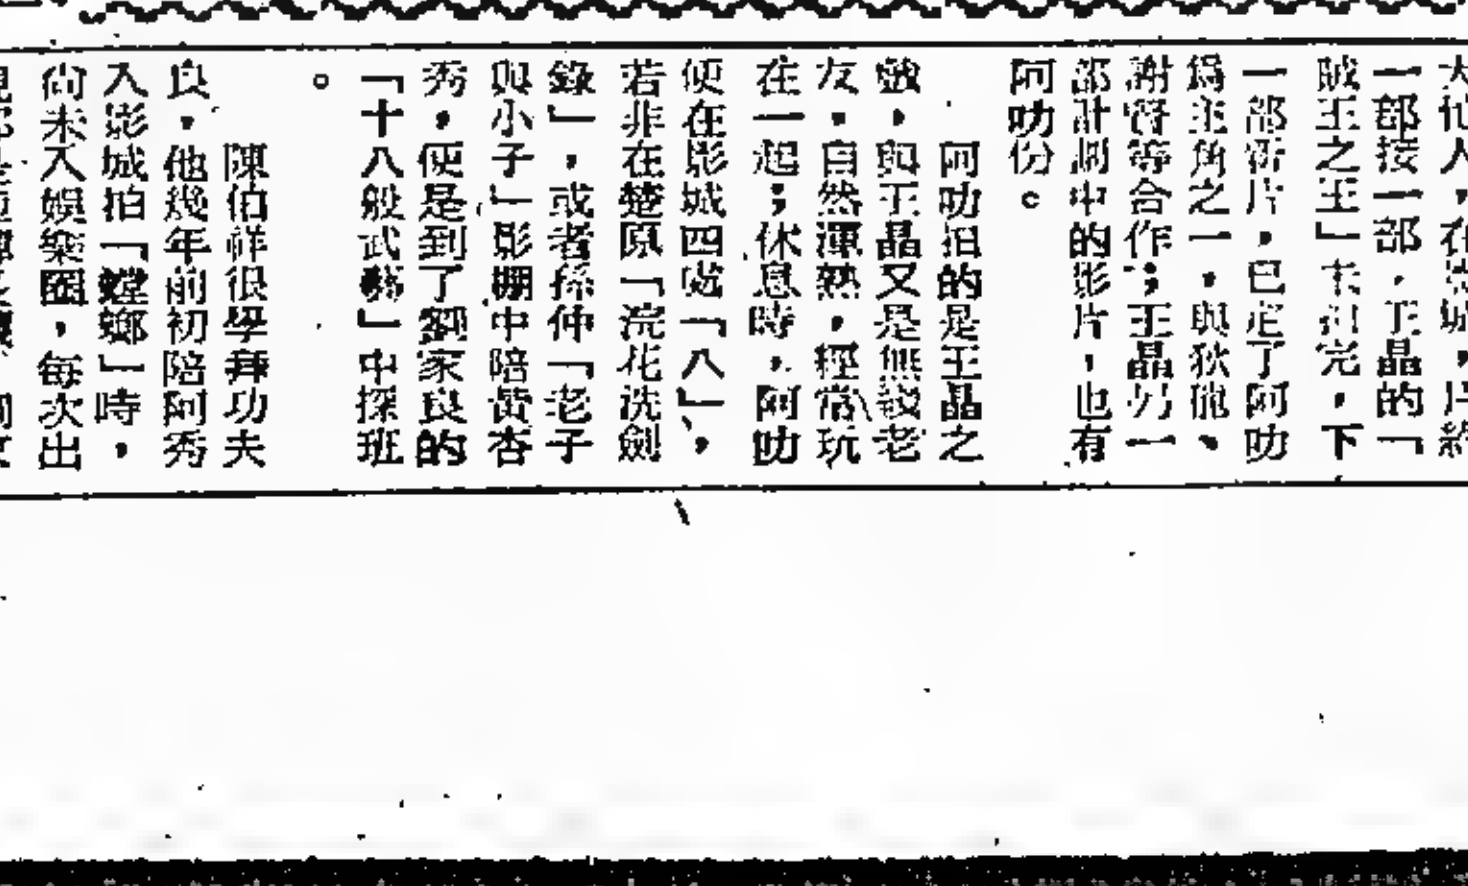 大他人,在影城,片約
一部接一部,王晶的「
賊王之王」未拍完,下
一部新片,已定了阿叻
爲主角之一,與狄龍、
謝賢等合作;王晶另一
部計劃中的影片,也有
阿叻份。
阿叻拍的是王晶之
戲,與王晶又是無綫老
友,自然渾熟,經常玩
在一起;休息時,阿叻
便在影城四處「八」,
若非在楚原「浣花洗劍
錄」,或者孫仲「老子
與小子」影棚中陪黃杏
秀,便是到了劉家良的
「十八般武藝」中探班
。
陳伯祥很學拜功夫
良,他幾年前初陪阿秀
入影城拍「螳螂」時,
尚未入娛樂圈,每次出